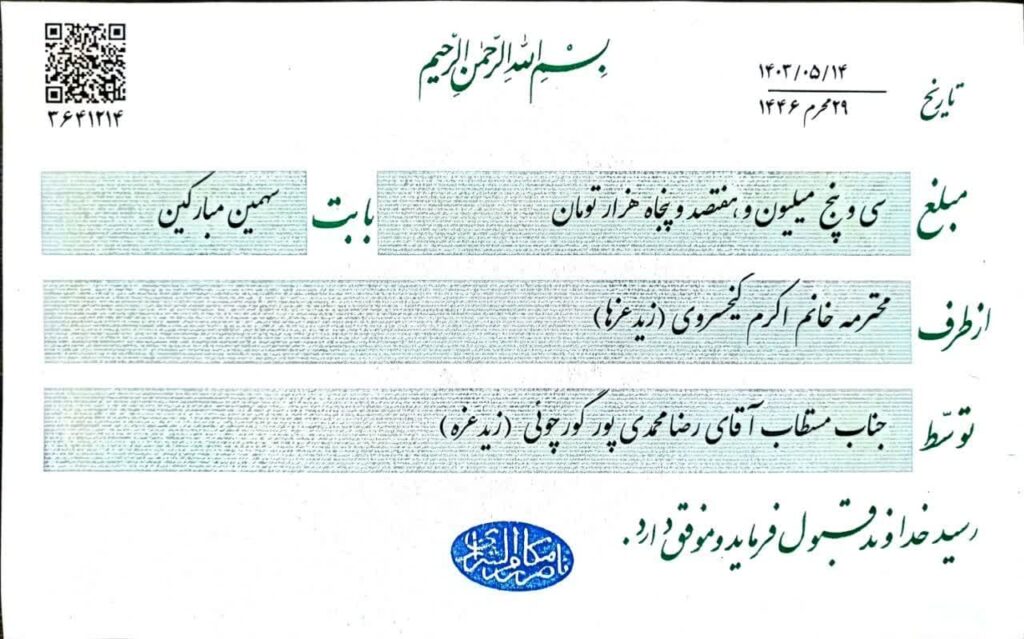 بسم الله الرحمن الرحیم
تاریخ ۱۴۰۳/۰۵/۱۴
۲۹ محرم ۱۴۴۶
۳۶۴۱۲۱۴
مبلغ سی و پنج میلیون و هفتصد و پنجاه هزار تومان بابت سهمین مبارکین
از طرف محترمه خانم اکرم کیخسروی (زید عزها)
توسّط جناب مستطاب آقای رضا محمدی پور گورچوئی (زید عزه)
رسید خداوند قبول فرماید و موفق دارد.
ناصر مکارم الشیرازی